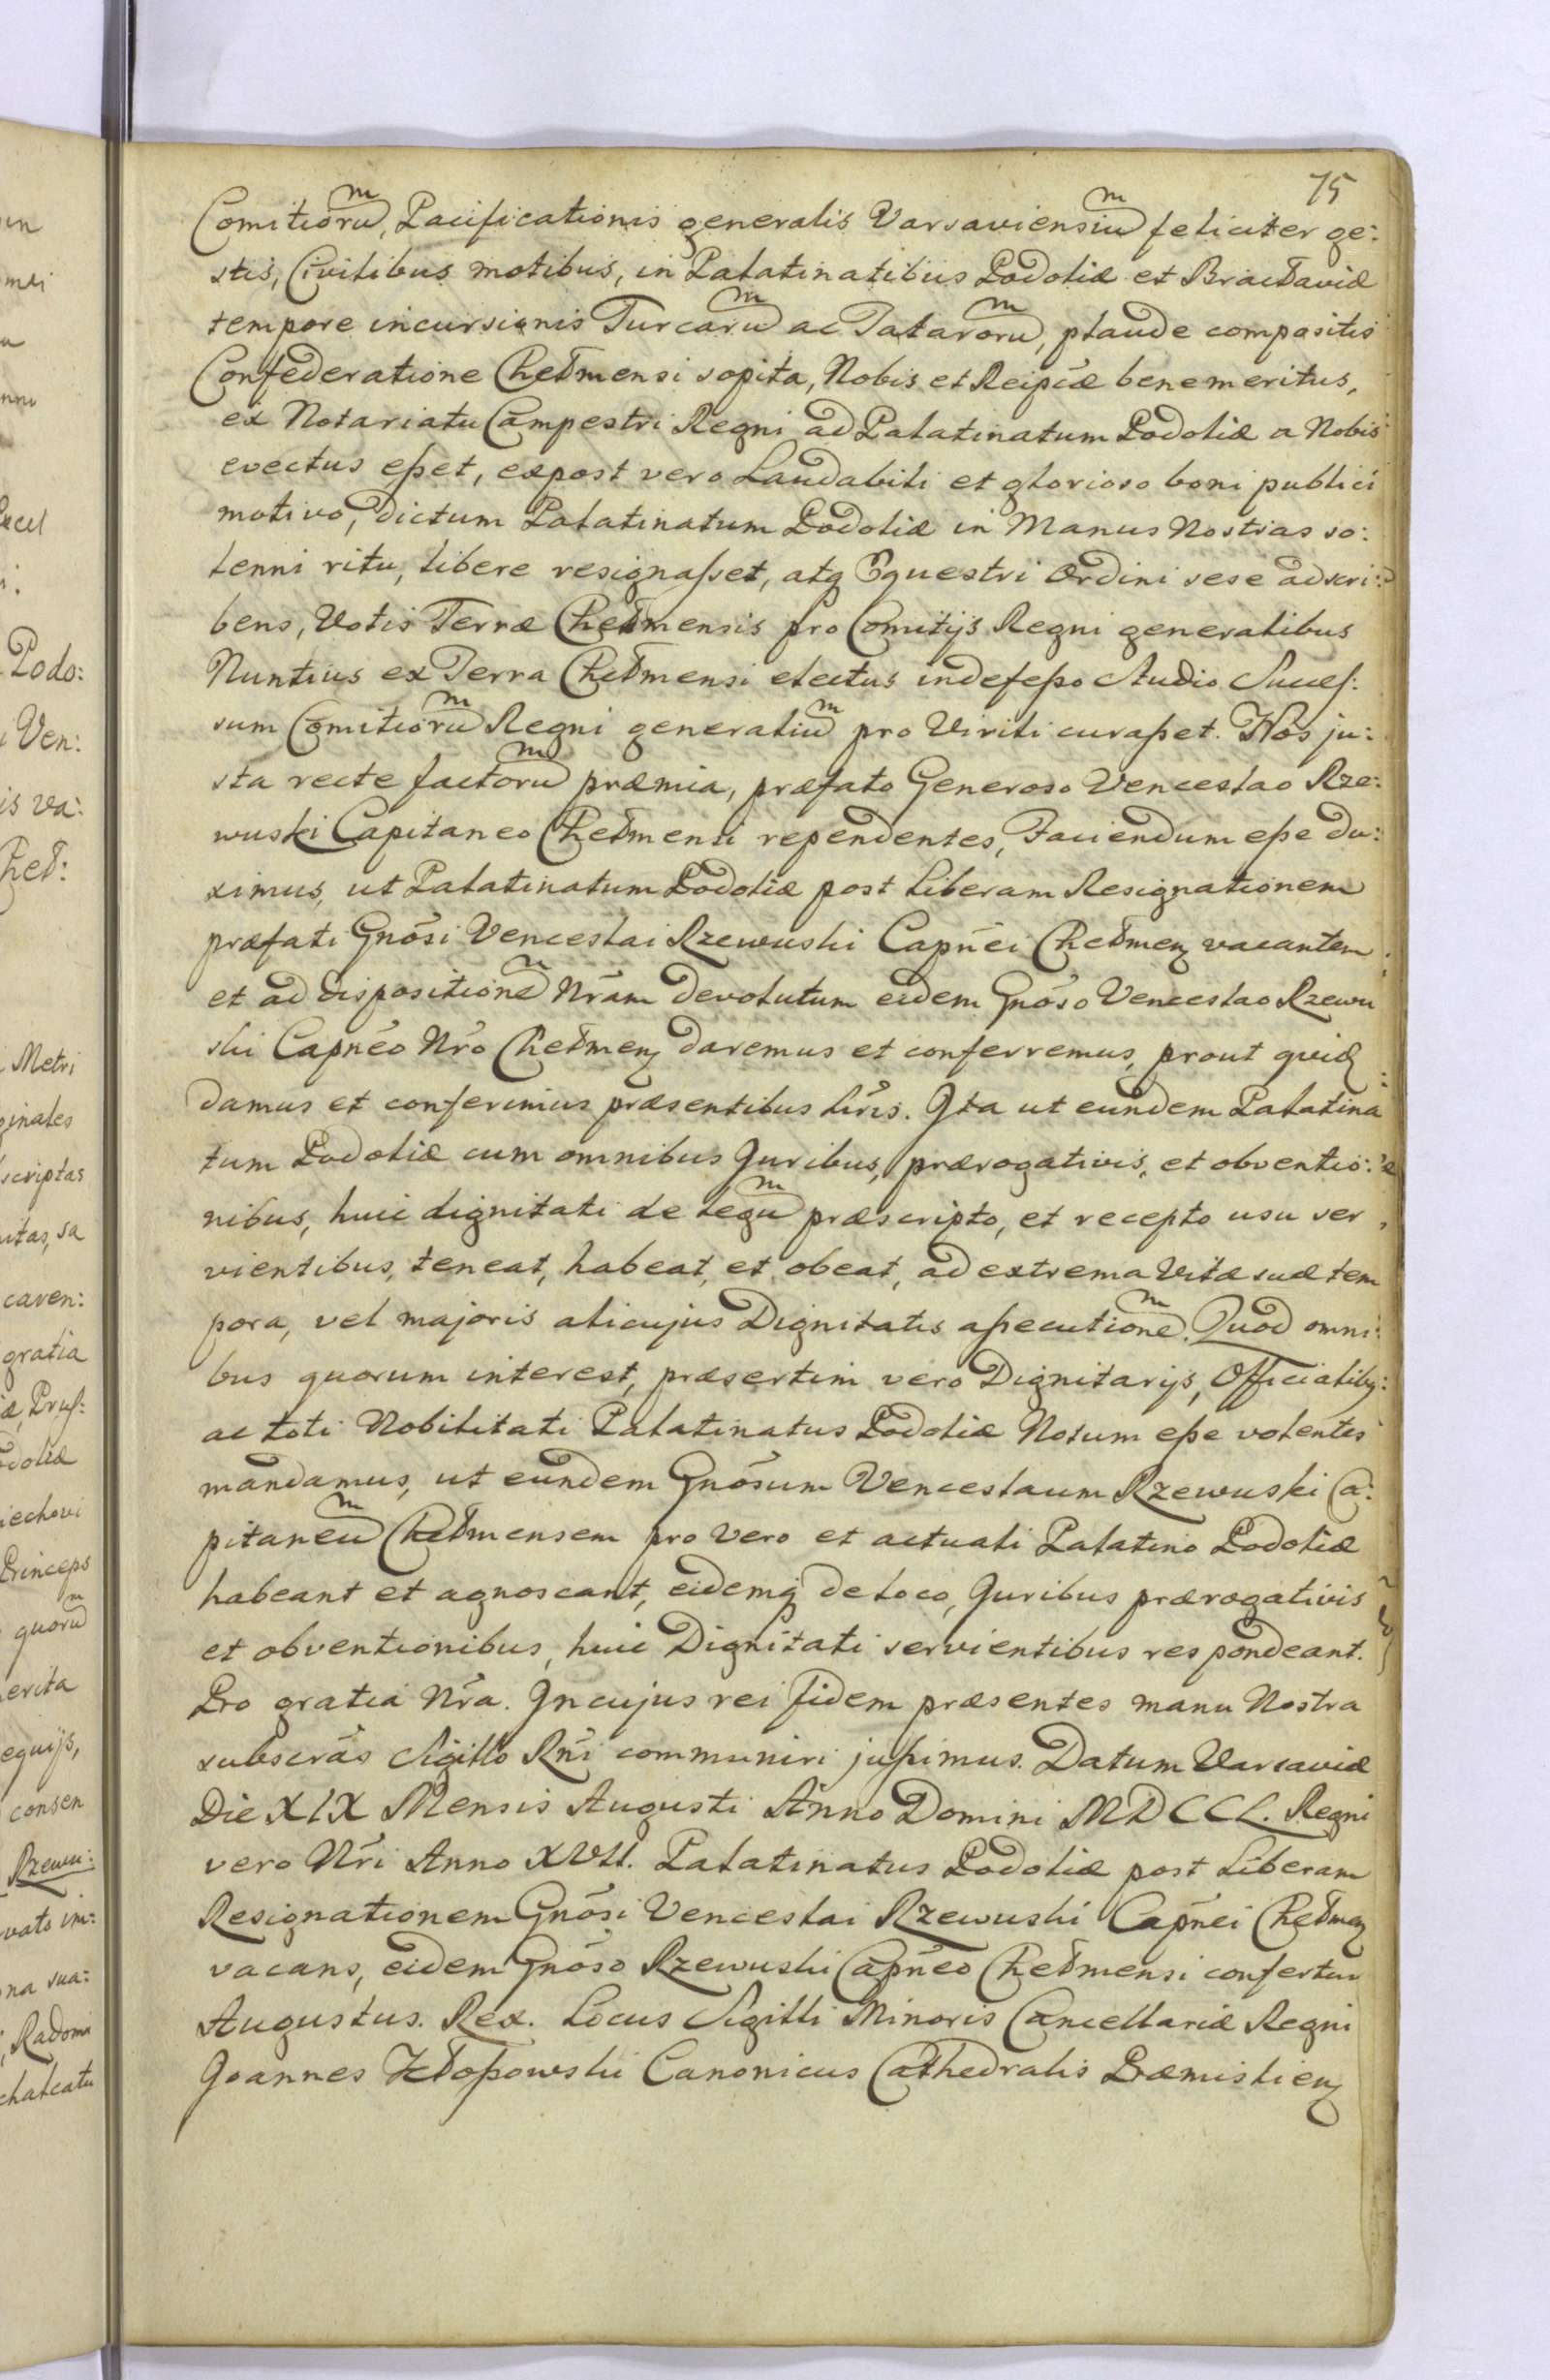 75
Comitiorum, Pacificationis generalis Varsaviensium feliciter ge:
stis, Civilibus motibus, in Palatinatibus Podoliæ et Bracłaviæ
tempore incursionis Turcarum ac Tatarorum, plaude compositis
Confederatione Chełmensi sopita, Nobis et Reipcæ benemeritus,
ex Notariatu Campestri Regni ad Palatinatum Podoliæ a Nobis
evectus eßet, expost vero Laudabili et glorioso boni publici
motivo, dictum Palatinatum Podoliæ in Manus Nostras so:
lenni ritu, libere resignaßet, atq Equestri Ordini sese adscri:
bens, Votis Terræ Chełmensis pro Comitijs Regni generalibus
Nuntius ex Terra Chełmensi electus indefeßo studio Succes:
sum Comitiorum Regni generalium pro Virili curaßet. Nos ju:
sta recte factorum præmia, præfato Generoso Venceslao Rze:
wuski Capitaneo Chełmensi rependentes, Faciendum eße du:
ximus, ut Palatinatum Podoliæ post liberam Resignationem
præfati Gnõsi Venceslai Rzewuski Capnẽi Chełmen vacantem
et ad dispositionem Nrãm devolutum eidem Gnõso Venceslao Rzewu
ski Capnẽo Nrõ Chełmen daremus et conferremus, prout quid
damus et conferimus præsentibus lirĩs. Ita ut eundem Palatina
tum Podoliæ cum omnibus Juribus, prærogativis, et obventio:
nibus, huic dignitati de legum præscripto, et recepto usu ser
vientibus, teneat, habeat, et obeat, ad extrema Vitæ suæ tem
pora, vel majoris alicujus Dignitatis aßecutionem. Quod omni:
bus quorum interest, præsertim vero Dignitarijs, Officialibq:
ac toti Nobilitati Palatinatus Podoliæ Notum eße volentes
mandamus, ut eundem Gnõsum Venceslaum Rzewuski Ca:
pitaneum Chełmensem pro vero et actuali Palatino Podoliæ
habeant et agnoscant, eidemq de loco, Juribus prærogativis
et obventionibus, huic Dignitati servientibus respondeant.
Pro gratia Nrã. In cujus rei fidem præsentes manu Nostra
subscrãs Sigillo Rnĩ communiri jußimus. Datum Varsaviæ
Die XIX Mensis Augusti Anno Domini MDCCL. Regni
vero Nrĩ Anno XVII. Palatinatus Podoliæ post Liberam
Resignationem Gnõsi Venceslai Rzewuski Capñei Chełmen
vacans, eidem Gnõso Rzewuski Capnẽo Chełmensi confertur
Augustus. Rex. Locus Sigilli Minoris Cancellariæ Regni
Joannes Kłoßowski Canonicus Cathedralis Præmislien